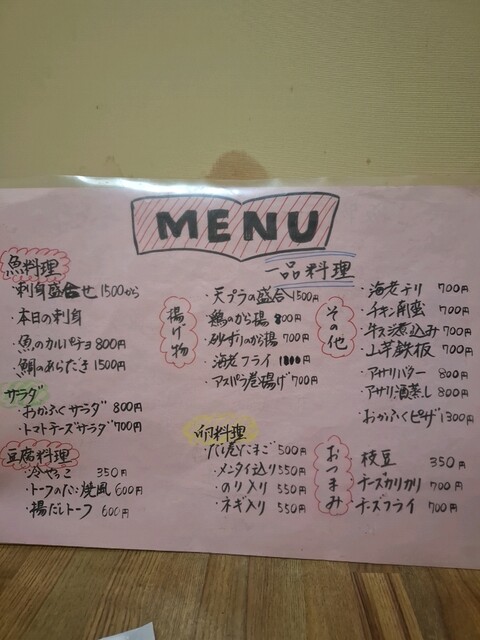 MENU
一品料理
魚料理
・刺身盛合せ 1500から
・本日の刺身
・魚のカルパッチョ 800円
・鯛のあらだき 1500円
サラダ
・おかふくサラダ 800円
・トマトチーズサラダ 700円
豆腐料理
・冷やっこ 350円
・トーフのたこ焼風 600円
・揚だしトーフ 600円
揚げ物
・天プラの盛合 1500円
・鶏のから揚 800円
・砂ずりのから揚 700円
・海老フライ
・アスパラ巻揚げ 700円
卵料理
・だし巻たまご 500円
・メンタイ込り 550円
・のり入り 550円
・ネギ入り 550円
その他
・海老チリ 700円
・チキン南蛮 700円
・牛スジ煮込み 700円
・山芋鉄板 700円
・アサリバター 800円
・アサリ酒蒸し 800円
・おかふくピザ 1300円
おつまみ
枝豆 350円
チーズカリカリ 700円
チーズフライ 700円